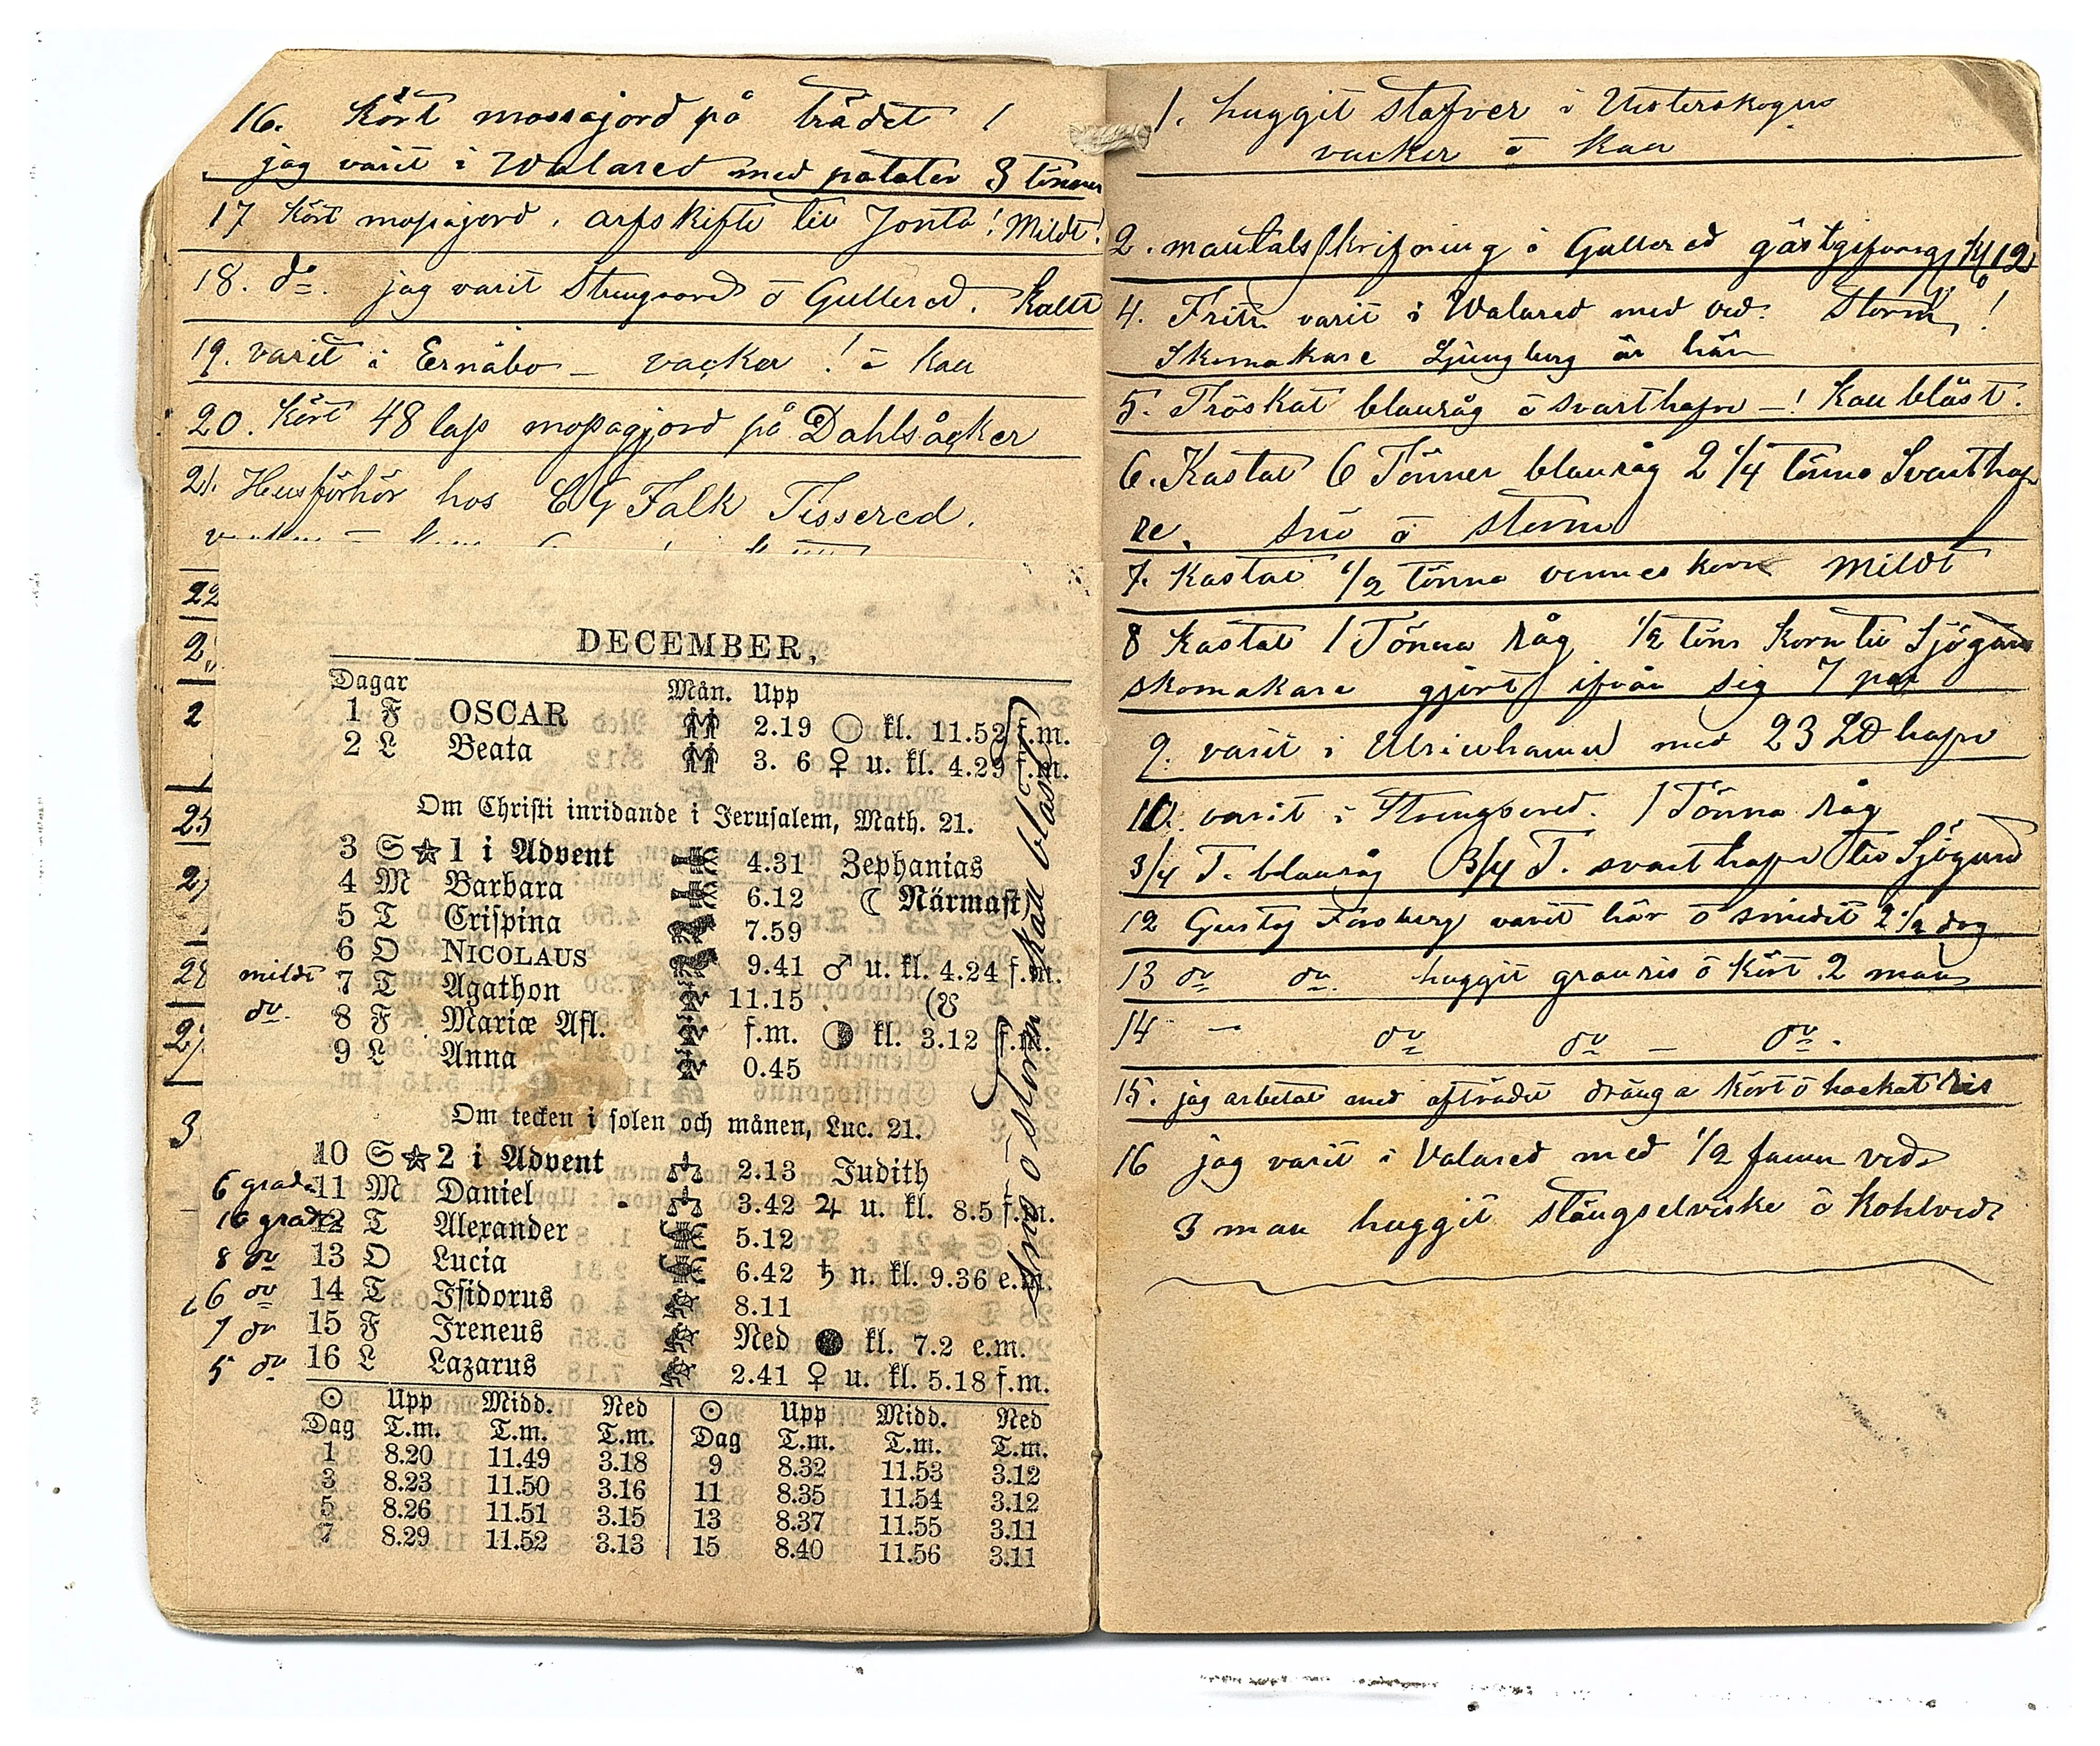 16. Kört mossajord på trädet !
jag varit i Walared med pätater 3 tönner
17 Kört mossajord, arfskifte til Jonta! Mildt!
18. do. jag varit Strengsered ö Gullered. Kallt
19. varit i Ernäbo – vacker! ö kall
20. Kört 48 lass mossagjord på Dahlsåcker
21. Husförhör hos C G Falk Tissered.
22
2
2
25
2
28
2
3
DECEMBER,
Dagar Mån. Upp
1 F OSCAR 2.19 ○ kl. 11.52 f.m.
2 L Beata 3. 6 ♀ u. kl. 4.29 f.m.
Om Christi inridande i Jerusalem, Math. 21.
3 S ☆ 1 i Advent 4.31 Zephanias
4 M Barbara 6.12 ☾ Närmast
5 T Crispina 7.59
6 O NICOLAUS 9.41 ♂ u. kl. 4.24 f.m.
mildt 7 T Agathon 11.15 (☋
do. 8 F Mariæ Afl. f.m. ◑ kl. 3.12 f.m.
9 L Anna 0.45
Om tecken i solen och månen, Luc. 21.
10 S ☆ 2 i Advent 2.13 Judith
6 grader 11 M Daniel 3.42 ♃ u. kl. 8.5 f.m.
10 grader 12 T Alexander 5.12
8 do 13 O Lucia 6.42 ♄ n. kl. 9.36 e.m.
6 do 14 T Isidorus 8.11
7 do 15 F Ireneus Ned ● kl. 7.2 e.m.
5 do 16 L Lazarus 2.41 ♀ u. kl. 5.18 f.m.
☉ Upp Midd. Ned ☉ Upp Midd. Ned
Dag T.m. T.m. T.m. Dag T.m. T.m. T.m.
1 8.20 11.49 3.18 9 8.32 11.53 3.12
3 8.23 11.50 3.16 11 8.35 11.54 3.12
5 8.26 11.51 3.15 13 8.37 11.55 3.11
7 8.29 11.52 3.13 15 8.40 11.56 3.11
Snö ö storm kall blåst
1. huggit stafver i Westerskogen
vacker ö kall
2. mantalsskrifning i Gullered gästgifvareg kl 12
4. Frits varit i Walared med ved. Storm!
Skomakare Ljungberg är här
5. Tröskat blanråg ö svarthafre –! Kall blåst.
6. Kastat 6 Tönner blanråg 2 1/4 tönna Svarthaf
re. snö ö storm
7. Kastat 1/2 tönna korn Mildt
8 Kastat 1 Tönna Råg 1/2 tön Korn til Sjögared
skomakare gjort ifrån sig 7 par
9. varit i Ulricehamn med 23 L℔ hafre
10. varit i Strengsered. 1 Tönna råg
3/4 T. blanråg 3/4 T. svarthafre til Sjögared
12 Gustaf Forsberg varit här ö smedit 2 1/2 dag
13 do do. huggit granris ö kört 2 man
14 – do do – do.
15. jag arbetat med afträdet dränga kört ö hackat Ris
16 jag varit i Valared med 1/2 famn ved
3 man huggit stängselvirke ö Kohlved